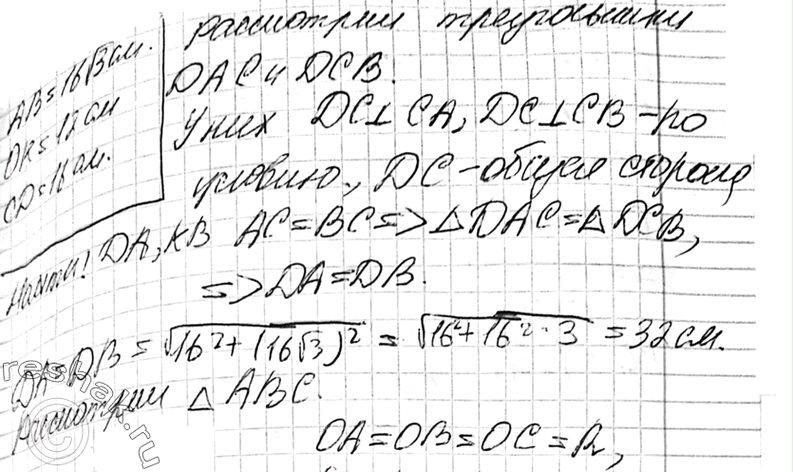 AB = 16√3 см.
OK = 12 см
CD = 16 см.
Найти: DA, KB
рассмотрим треугольники
DAC и DCB.
У них DC⊥CA, DC⊥CB - по
условию, DC - общая сторона
AC = BC => △DAC = △DCB,
=> DA = DB.
DA = DB = √16² + (16√3)² = √16² + 16² · 3 = 32 см.
Рассмотрим △ABC.
OA = OB = OC = R,
reshak.ru